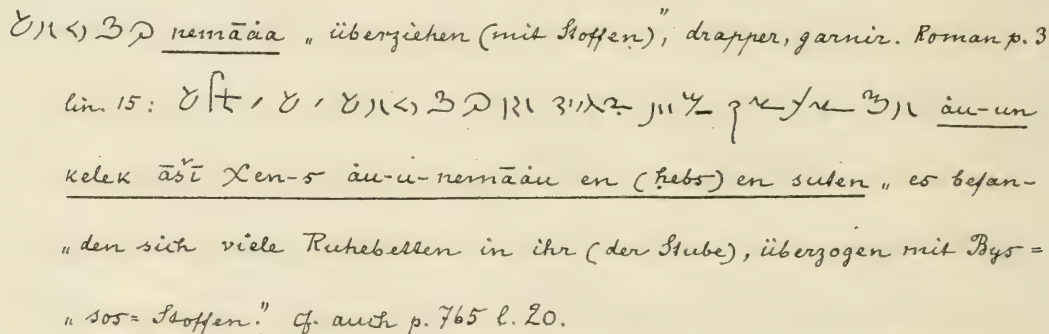 nemāȧa „ überziehen (mit Stoffen)", drapper, garnir. Roman p. 3
lin. 15: ȧu-un
kelek āšī χen-s ȧu-u-nemāȧu en (ḥebs) en suten „ es befan-
„ den sich viele Ruhebetten in ihr (der Stube), überzogen mit Bys=
„ sos= Stoffen." cf. auch p. 765 l. 20.